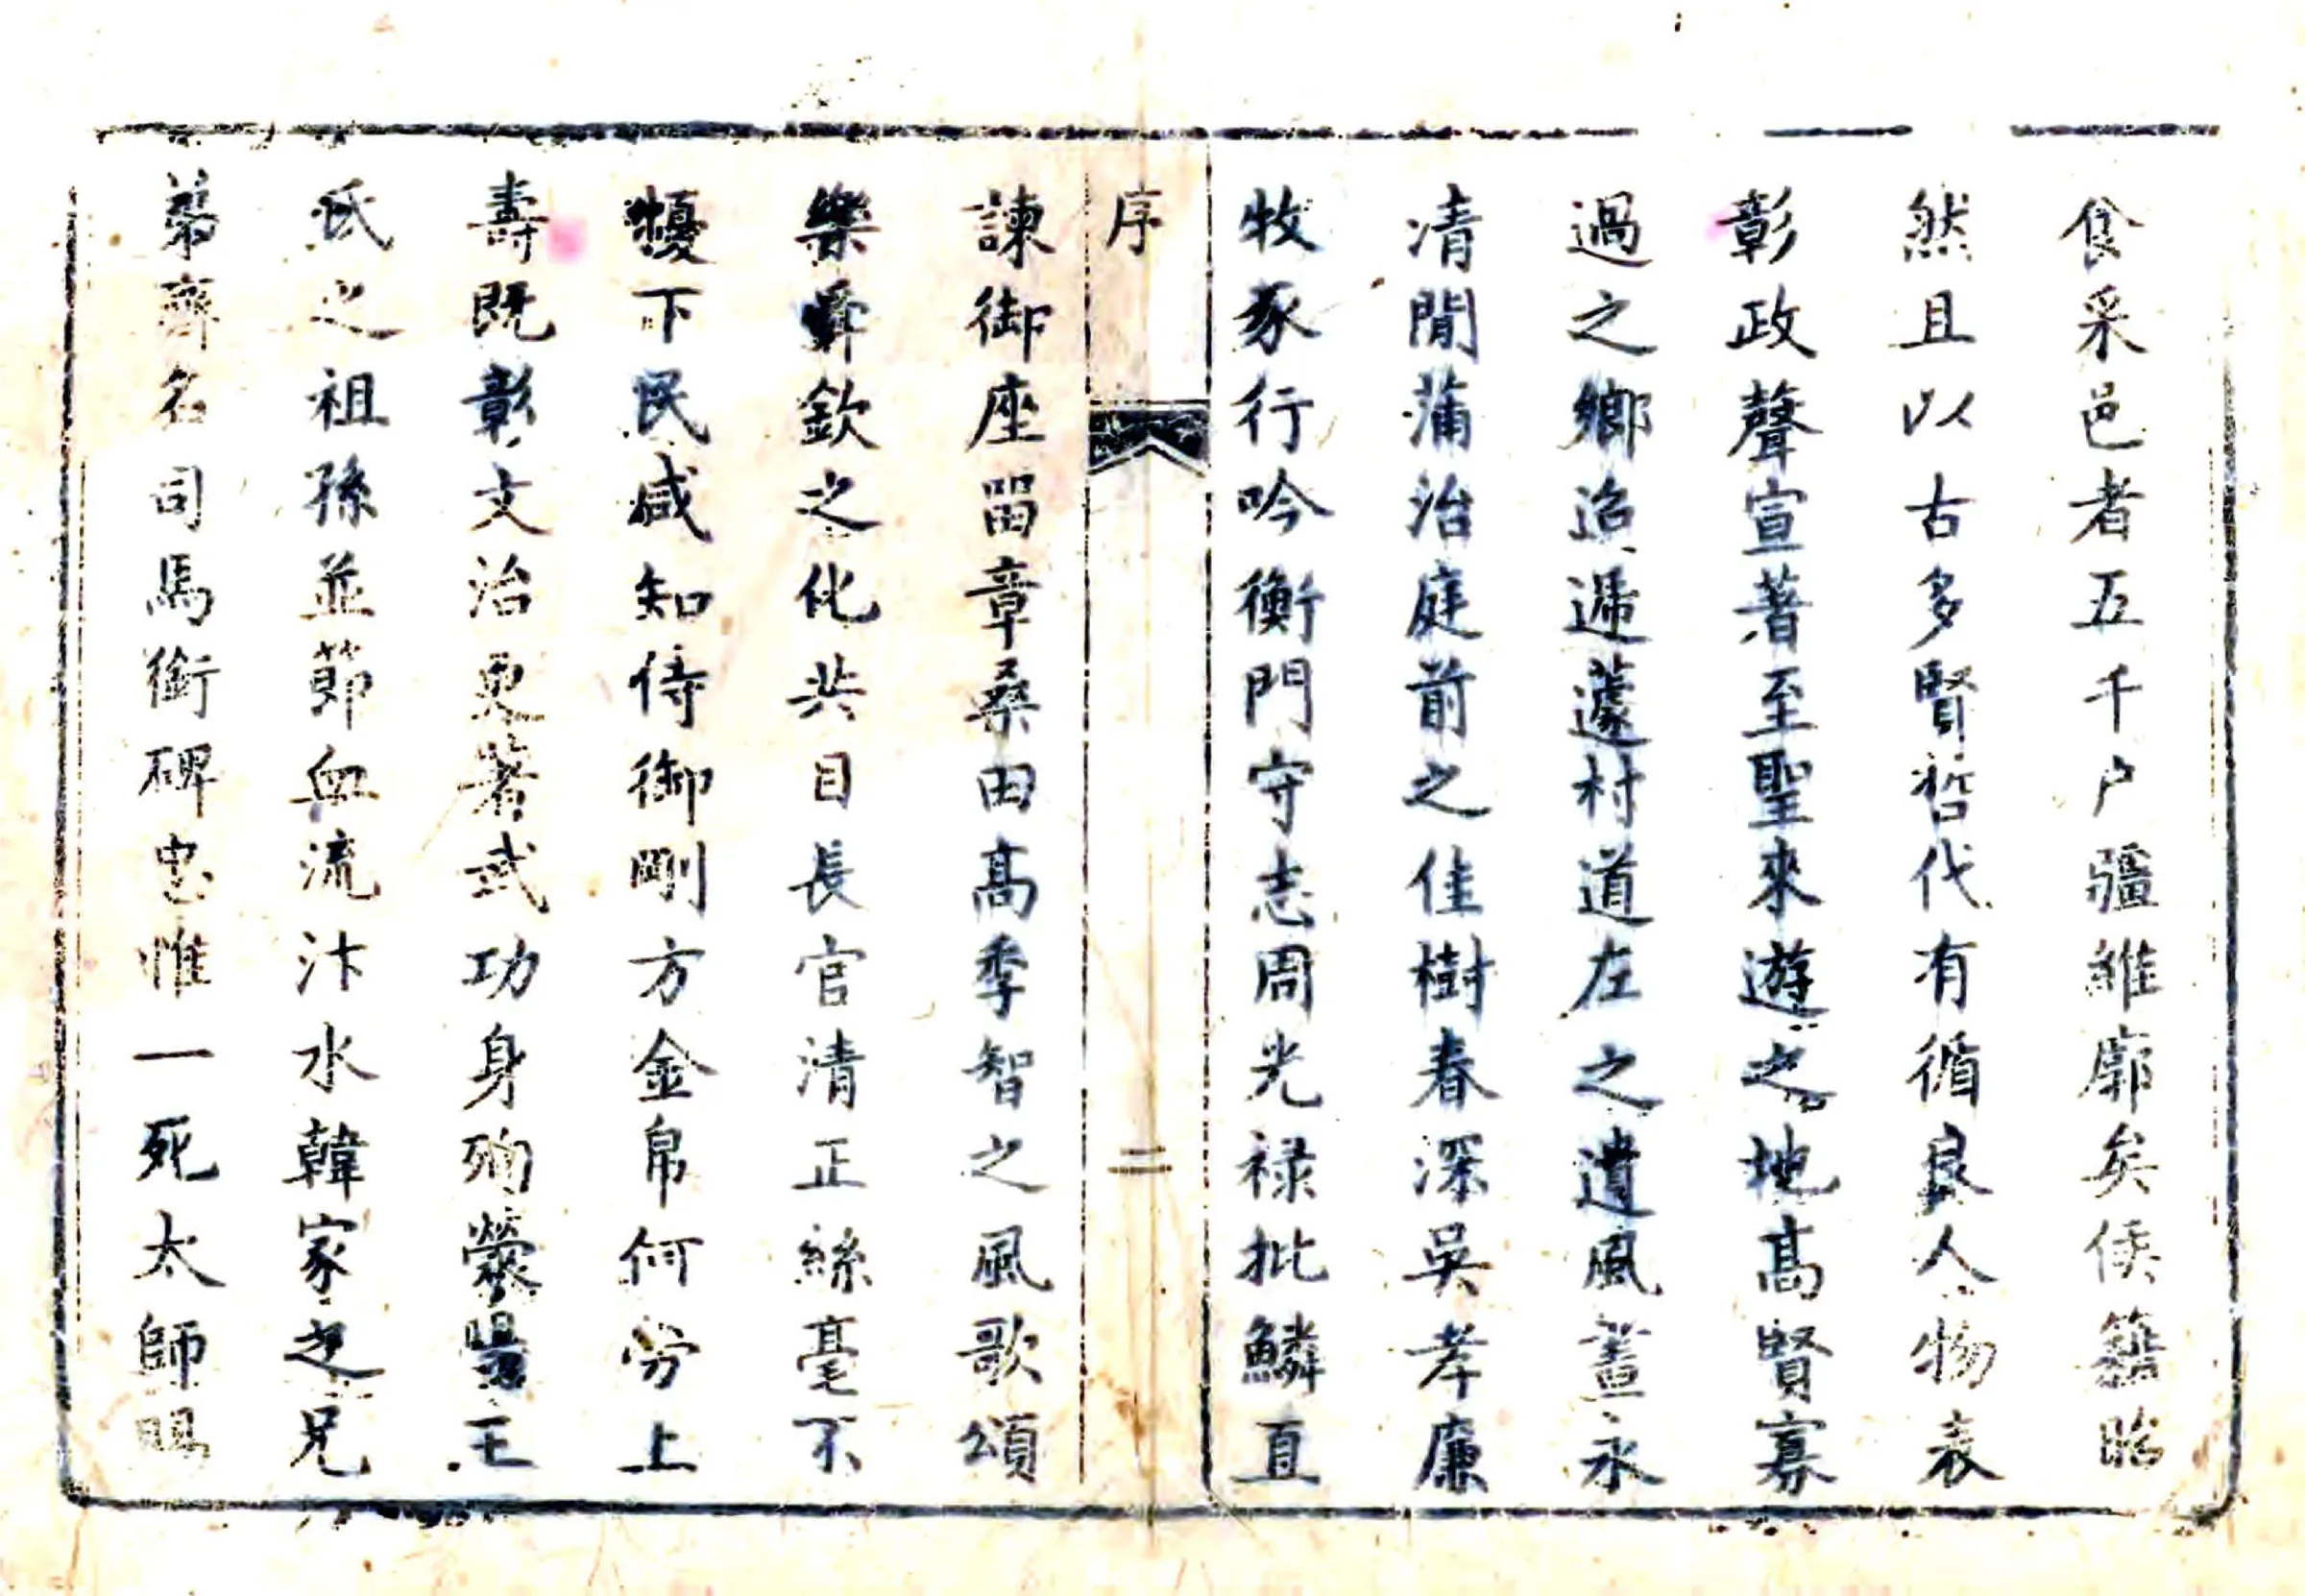 食采邑者五千户疆維廓矣侯籍昭
然且以古多賢哲代有循良人物表
彰政聲宣著至聖來遊之地高賢寡
過之鄉迢遞蘧村道左之遺風晝永
清閒蒲治庭前之佳樹春深吳孝廉
牧豕行吟衡門守志周光禄批鱗直
序
二
諫御座留章桑田高季智之風歌頌
樂舜欽之化共目長官清正絲毫不
擾下民咸知侍御剛方金帛何勞上
壽既彰文治更著武功身殉滎陽王
氏之祖孫並節血流汴水韓家之兄
弟齊名司馬銜碑忠惟一死太師賜